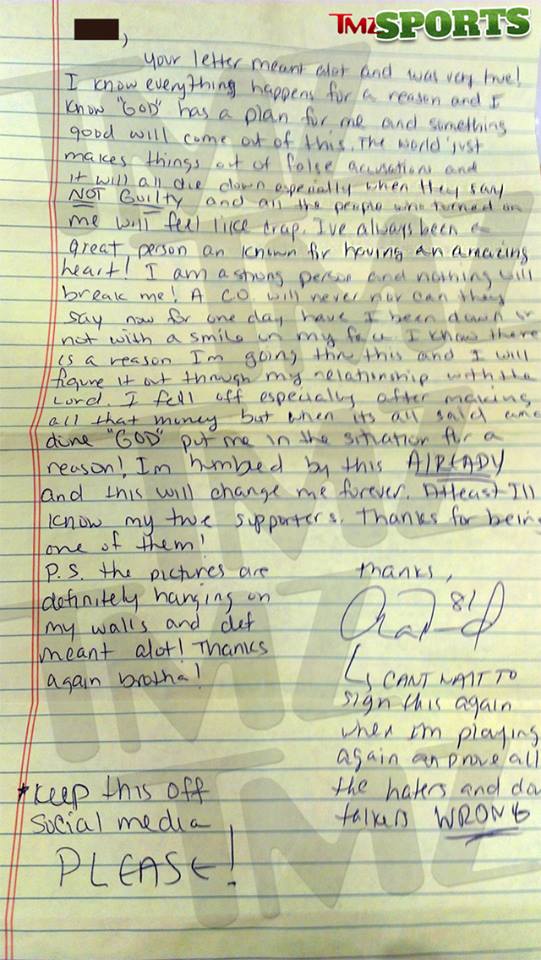 TMZ SPORTS
)
your letter meant alot and was very true!
I know everything happens for a reason and I
know "GOD" has a plan for me and something
good will come out of this. The world just
makes things out of false accusations and
it will all die down especially when they say
NOT Guilty and all the people who turned on
me will feel like crap. I've always been a
great person an known for having an amazing
heart! I am a strong person and nothing will
break me! A C.O. will never nor can they
say now for one day have I been down or
not with a smile on my face I know there
is a reason Im going thru this and I will
figure it out through my relationship with the
Lord. I fell off especially after making
all that money but when its all said and
done "GOD" put me in the situation for a
reason! Im humbled by this AlREADY
and this will change me forever. Atleast Ill
know my true supporters. Thanks for being
one of them!
P.S. the pictures are
definitely hanging on
my walls and def
meant alot! Thanks
again brotha!
thanks,
81
CANT WAIT TO
sign this again
when im playing
again an prove all
the haters and
talkers WRONG
*Keep this off
social media
PLEASE!
TMZ